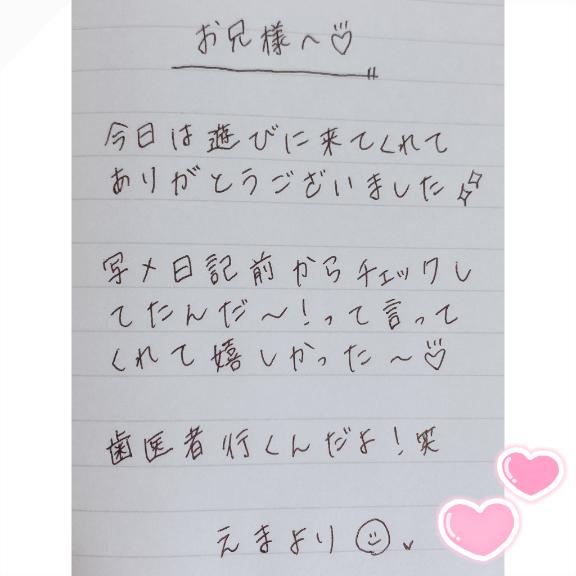 お兄様へ♡
今日は遊びに来てくれて
ありがとうございました✨
写メ日記前からチェックし
てたんだ〜!って言って
くれて嬉しかった〜♡
歯医者行くんだよ!笑
えまより☺